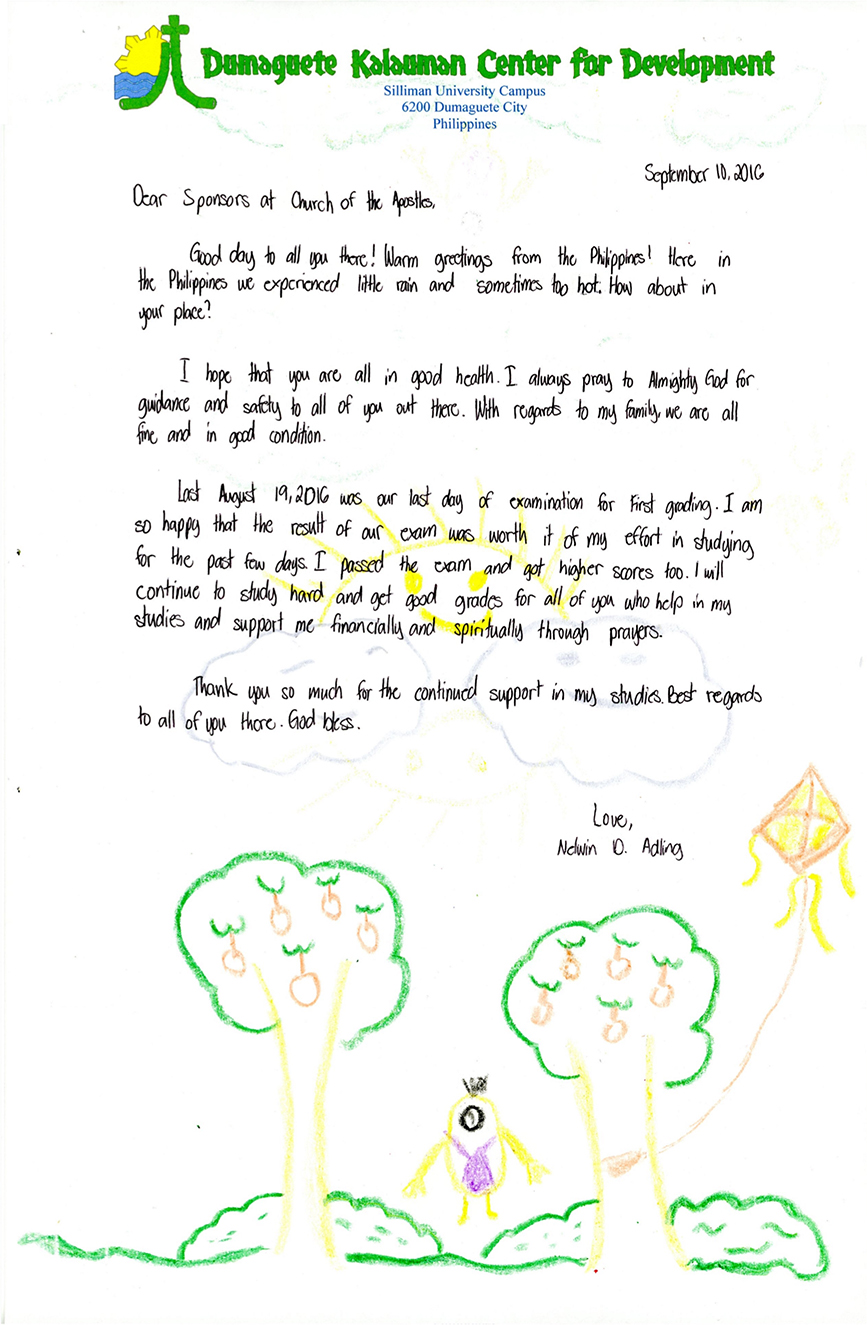 Dumaguete Kalauman Center for Development
Silliman University Campus
6200 Dumaguete City
Philippines
September 10, 2016
Dear Sponsors at Church of the Apostles,
Good day to all you there! Warm greetings from the Philippines! Here in
the Philippines we experienced little rain and sometimes too hot. How about in
your place?
I hope that you are all in good health. I always pray to Almighty God for
guidance and safety to all of you out there. With regards to my family, we are all
fine and in good condition.
Last August 19, 2016 was our last day of examination for First grading. I am
so happy that the result of our exam was worth it of my effort in studying
for the past few days. I passed the exam and got higher scores too. I will
continue to study hard and get good grades for all of you who help in my
studies and support me financially and spiritually through prayers.
Thank you so much for the continued support in my studies. Best regards
to all of you there. God bless.
Love,
Nelwin D. Adling